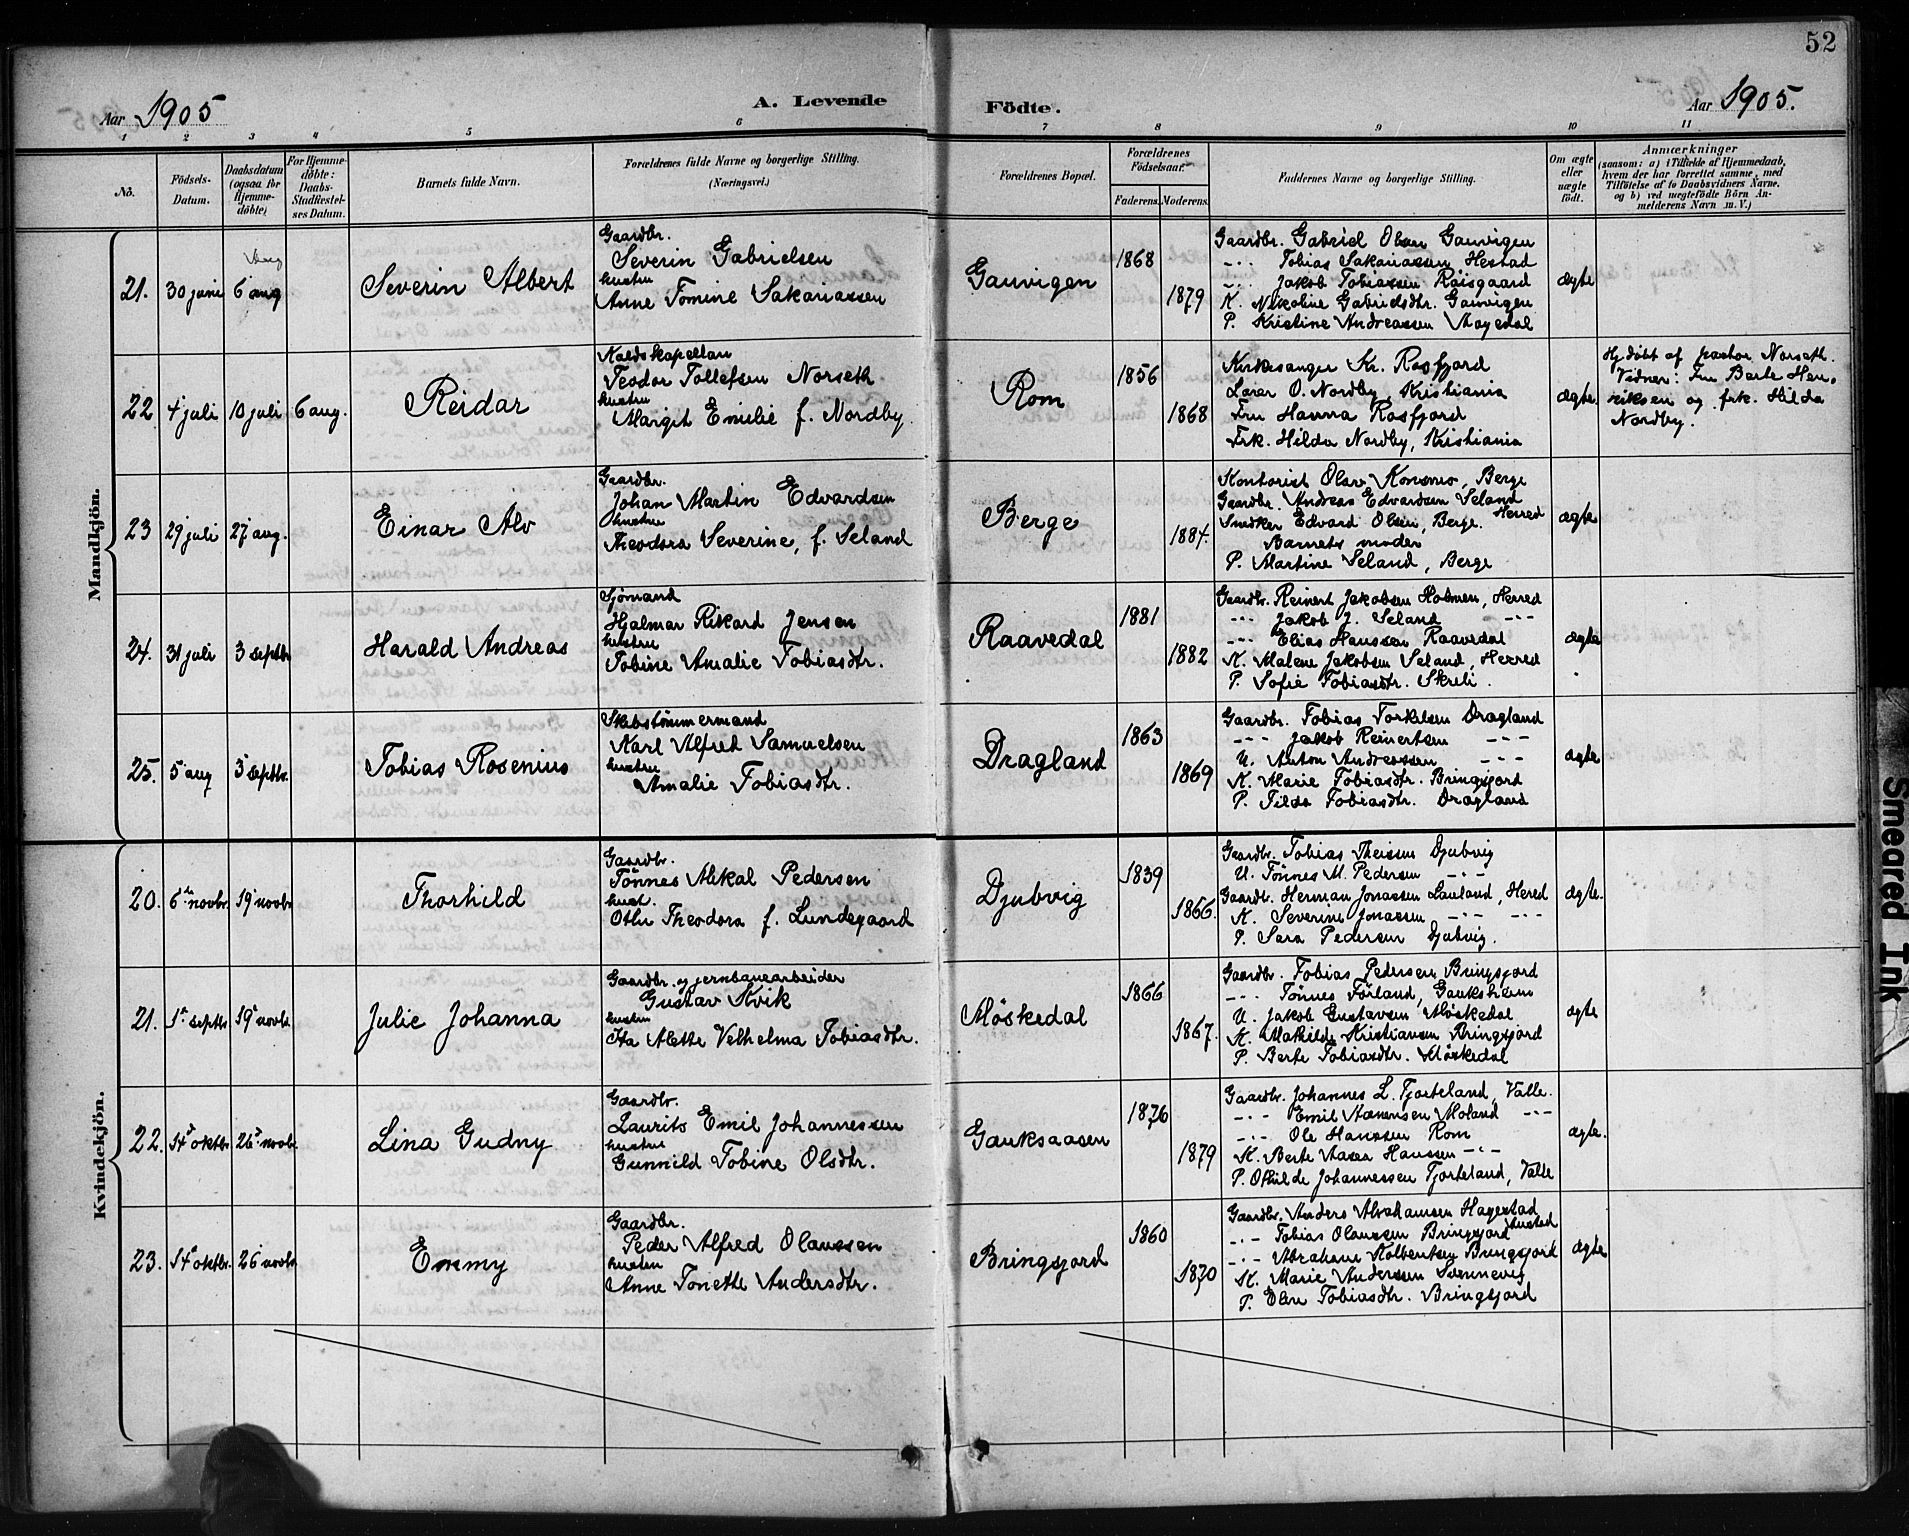 52
Aar 1905
A. Levende
Födte.
Aar 1905.
1 2 3 4 5 6 7 8 9 10 11
No.
Födsels-
Datum.
Daabsdatum
(ogsaa for
Hjemme-
döbte)
For Hjemme-
döbte:
Daabs-
Stadfestel-
ses Datum.
Barnets fulde Navn.
Forældrenes fulde Navne og borgerlige Stilling.
(Næringsvei.)
Forældrenes Bopæl.
Forældrenes
Födselsaar.
Faderens.
Moderens.
Faddernes Navne og borgerlige Stilling.
Om ægte
eller
uægte
født.
Anmærkninger
(saasom: a) i Tilfælde af Hjemmedaab,
hvem der har forrettet samme, med
Tilföielse af to Daabsvidners Navne.
og b) ved uægtefödte Börn An-
melderens Navn m. V.)
Mandkjön.
21. 30 juni 6 aug
Severin Albert
Gaardbr.
Severin Gabrielsen
hustru
Anne Tomine Sakariassen
Gauvigen
1868
1879
Gaardbr. Gabriel Olsen Gauvigen
-"- Tobias Sakariassen Hestad
-"- Jakob Tobiassen Röisgaard
K. Nikoline Gabrielsdtr. Gauvigen
P. Kristine Andreassen
ægte
22 4 juli 10 juli 6 aug.
Reidar
Kaldskapellan
Teodor Tollefsen Norseth
hustru
Margit Emilie f. Nordby.
Rom
1856
1868
Kirkesanger Kr. Rosfjord
Lærer O. Nordby, Kristiania
Fru Hanna Rosfjord
Frk. Hilda Nordby, Kristiania
ægte
Hj.döbt af pastor Norseth.
Vidner: Fru Berte Hen-
riksen og frk. Hilda
Nordby.
23 29 juli 27 aug.
Einar Alv
Gaardbr.
Johan Martin Edvardsen
hustru
Theodora Severine, f. Seland
Berge
1884.
Kontorist Olav Berge
Gaardbr. Andreas Edvardsen Seland
Herred
Snedker Edvard Olsen, Berge.
Barnets moder
P. Martine Seland, Berge
ægte
24. 31 juli 3 septbr
Harald Andreas
Sjömand
Hjalmar Rikard Jensen
hustru
Tobine Amalie Tobiasdtr.
Raavedal
1881
1882
Gaardbr. Reinert Jakobsen Holmen, Herred
-"- Jakob J. Seland -"-
-"- Elias Hanssen Raavedal
K. Malene Jakobsen Seland, Herred
P. Sofie Tobiasdtr. Skreli.
ægte
25. 5 aug 3 septbr.
Tobias Rosenius
Skibstömmermand
Karl Alfred Samuelsen
hustru
Amalie Tobiasdtr.
Dragland
1863
1869
Gaardbr. Tobias Torkelsen Dragland
-"- Jakob Reinertsen -"-
U. Anton Andreassen -"-
K. Marie Tobiasdtr. Bringsjord
P. Tilda Tobiasdtr. Dragland
ægte
Kvindekjön.
20. 6te novbr. 19 novbr
Thorhild
Gaardbr.
Tönnes Mikal Pedersen
hust.
Othe Theodora f. Lundegaard
Djubvig
1839
1866.
Gaardbr. Tobias Theisen Djubvig
U. Tönnes M. Pedersen -"-
Gaardbr. Herman Jonassen Lauland, Hered
K. Severine Jonassen -"- -"-
P. Sara Pedersen Djubvig.
ægte.
21. 1ste septbr 19 novbr.
Julie Johanna
Gaardbr. og jernbanearbeider
Gustav Kvik
hustru
Ita Mette Velhelma Tobiasdtr.
Möskedal
1866
1867.
Gaardbr. Tobias Pedersen Bringsjord
-"- Tönnes Förland, Gauksheim
U. Jakob Gustavsen Möskedal
K. Mathilde Kristiansen Bringsjord
P. Berte Tobiasdtr. Möskedal
ægte
22. 14 oktbr. 26 novbr.
Lina Gudny
Gaardbr.
Laurits Emil Johannessen
hustru
Gunnild Tobine Olsdtr.
Gauksaasen
1876
1879
Gaardbr. Johannes L. Fjorteland, Valle.
-"- Emil Moland -"-
-"- Ole Hanssen Rom
K. Berte Aasen Hanssen -"-
P. Othilde Johannessen Fjorteland, Valle
ægte.
23. 14 oktbr. 26 novbr.
Emmy
Gaardbr.
Peder Alfred Olaussen
hustru
Anne Tonette Andersdtr.
Bringsjord
1860
1870
Gaardbr. Anders Abrahamsen Hagestad
-"- Tobias Olaussen Bringsjord
-"- Abraham Bringsjord
K. Marie Andersen
P. Elen Tobiasdtr. Bringsjord
ægte
Smeared Ink